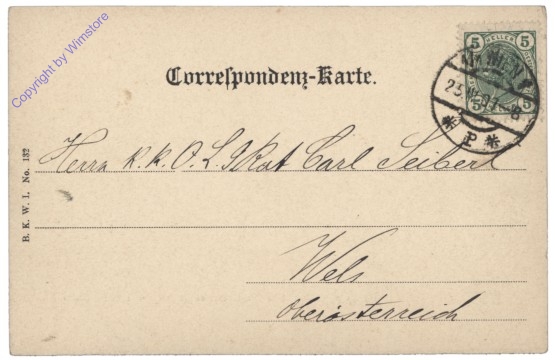 Copyright by Wimstore
5 HELLER 5
WIEN
23.
* P *
Correspondenz-Karte.
Herrn k. k. O. L. G. Rat Carl Seibert
Wels
Oberösterreich
B. K. W. I. No. 132